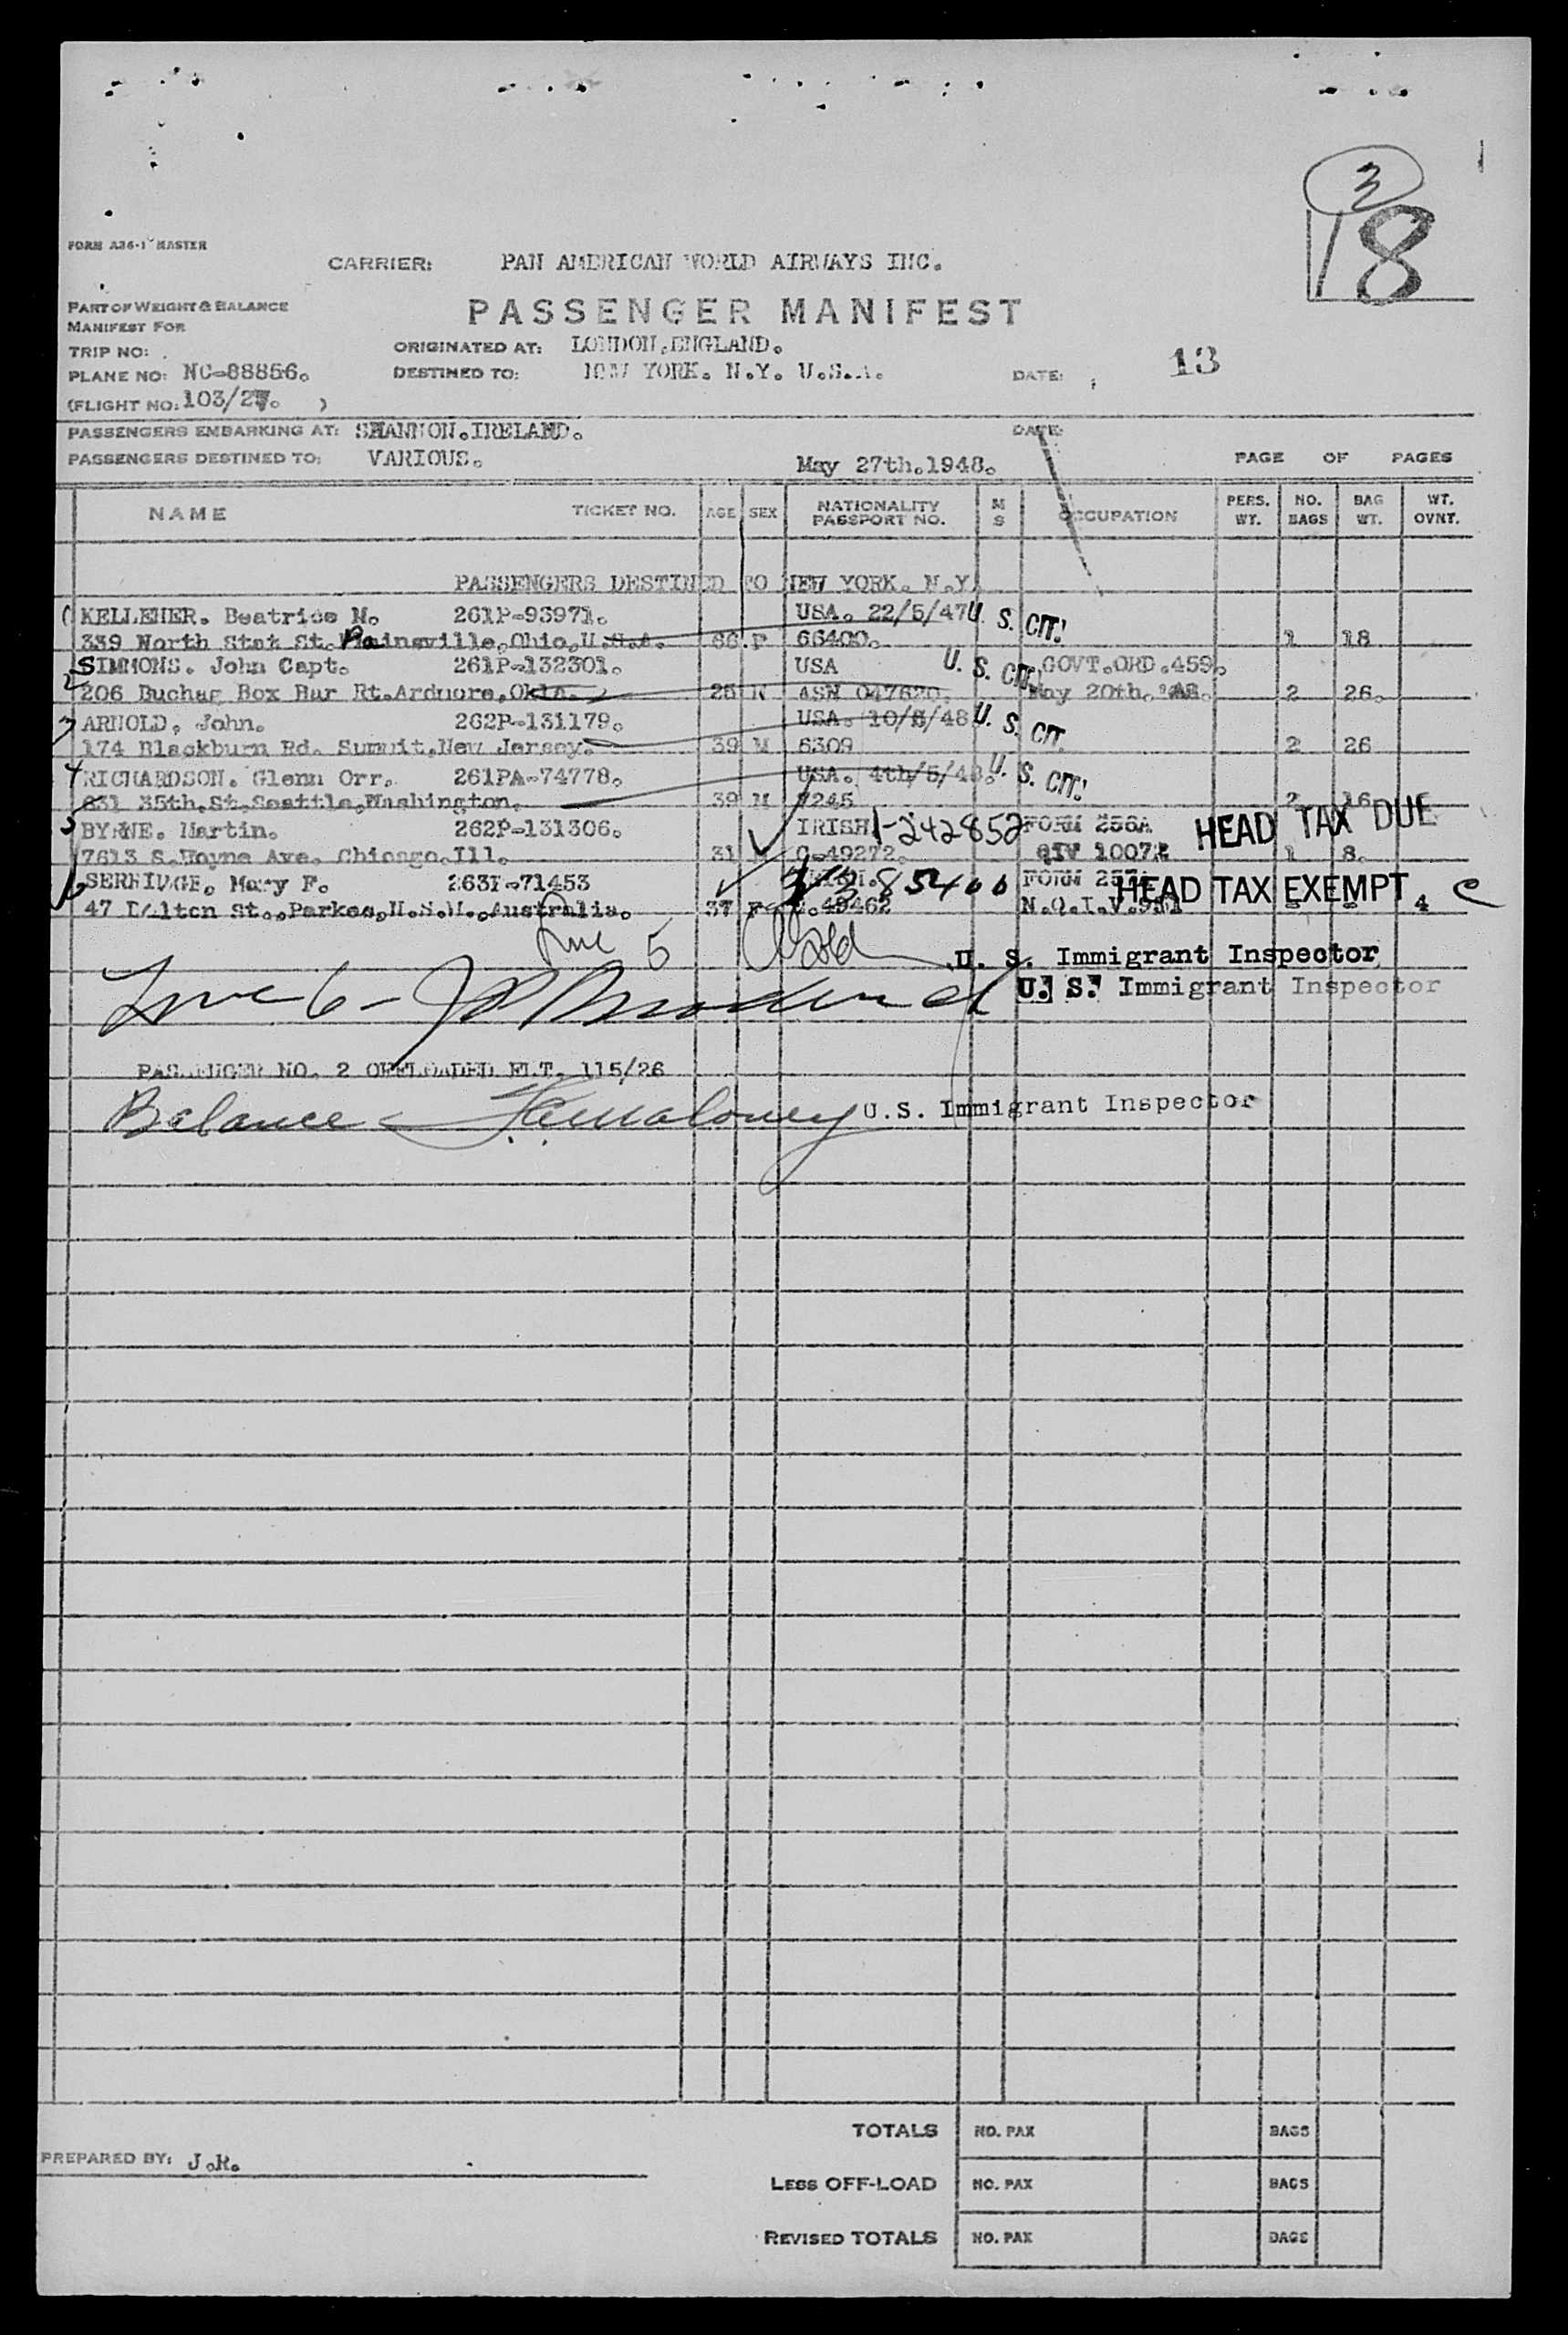 3
18
FORM A36-1 MASTER
CARRIER: PAN AMERICAN WORLD AIRWAYS INC.
PART OF WEIGHT & BALANCE
MANIFEST FOR
PASSENGER MANIFEST
TRIP NO: ORIGINATED AT: LONDON.ENGLAND.
PLANE NO: NC-88856. DESTINED TO: NEW YORK. N.Y. U.S.A. DATE: 13
(FLIGHT NO: 103/27. )
PASSENGERS EMBARKING AT: SHANNON.IRELAND. DATE:
PASSENGERS DESTINED TO: VARIOUS. May 27th.1948. PAGE OF PAGES
NAME TICKET NO. AGE SEX NATIONALITY PASSPORT NO. M S OCCUPATION PERS. WT. NO. BAGS BAG WT. WT. OVNT.
PASSENGERS DESTINED TO NEW YORK. N.Y.
1 KELLEHER. Beatrice M. 261P-93971. USA. 22/5/47 U. S. CIT.
339 North Stat St. Painsville,Ohio,U.S.A. 66 F 66400. 1 18
2 SIMMONS. John Capt. 261P-132301. USA U. S. CIT. GOVT.ORD.459.
206 Buchag Box Bar Rt.Ardmore,Okla. 25 M ASN 047620. May 20th. 48. 2 26.
3 ARNOLD, John. 262P-131179. USA. 10/5/48 U. S. CIT.
174 Blackburn Rd. Summit,New Jersey. 39 M 6309 2 26
4 RICHARDSON. Glenn Orr. 261PA-74778. USA. 4th/5/48. U. S. CIT.
631 35th.St.Seattle,Washington. 39 M 7245 2 16
5 BYRNE. Martin. 262P-131306. IRISH 1-242852 FORM 256A HEAD TAX DUE
7613 S.Wayne Ave. Chicago.Ill. 31 M C-49272. QIV 10072 1 8.
6 SERRIDGE. Mary F. 263P-71453 85400 FORM 257A HEAD TAX EXEMPT. C
47 Dalton St.,Parkes,N.S.W.,Australia. 37 F .49462 N.Q.I.V.951 4
Line 5 U. S. Immigrant Inspector
Line 6 - U. S. Immigrant Inspector
PASSENGER NO. 2 OFFLOADED FLT. 115/26
Balance - Maloney U.S. Immigrant Inspector
TOTALS NO. PAX BAGS
PREPARED BY: J.R.
LESS OFF-LOAD NO. PAX BAGS
REVISED TOTALS NO. PAX BAGS